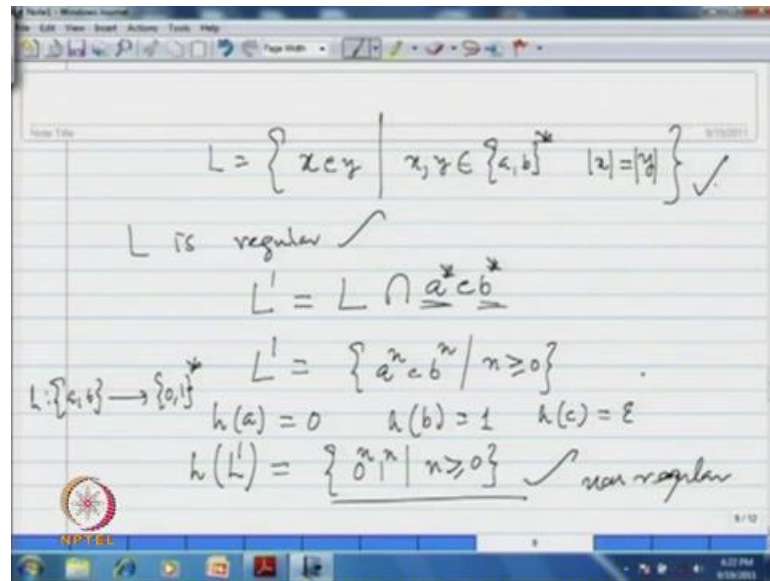 Note1 - Windows Journal
File Edit View Insert Actions Tools Help
Page Width
Note Title
9/13/2011
L = { x c y | x, y ∈ {a, b}* |x| = |y| } ✓
L is regular ✓
L' = L ∩ a* c b*
L' = { aⁿ c bⁿ | n ≥ 0 }
h: {a, b} → {0, 1}*
h(a) = 0 h(b) = 1 h(c) = ε
h(L') = { 0ⁿ 1ⁿ | n ≥ 0 } ✓ non regular
9/12
9
NPTEL
6:22 PM
9/13/2011